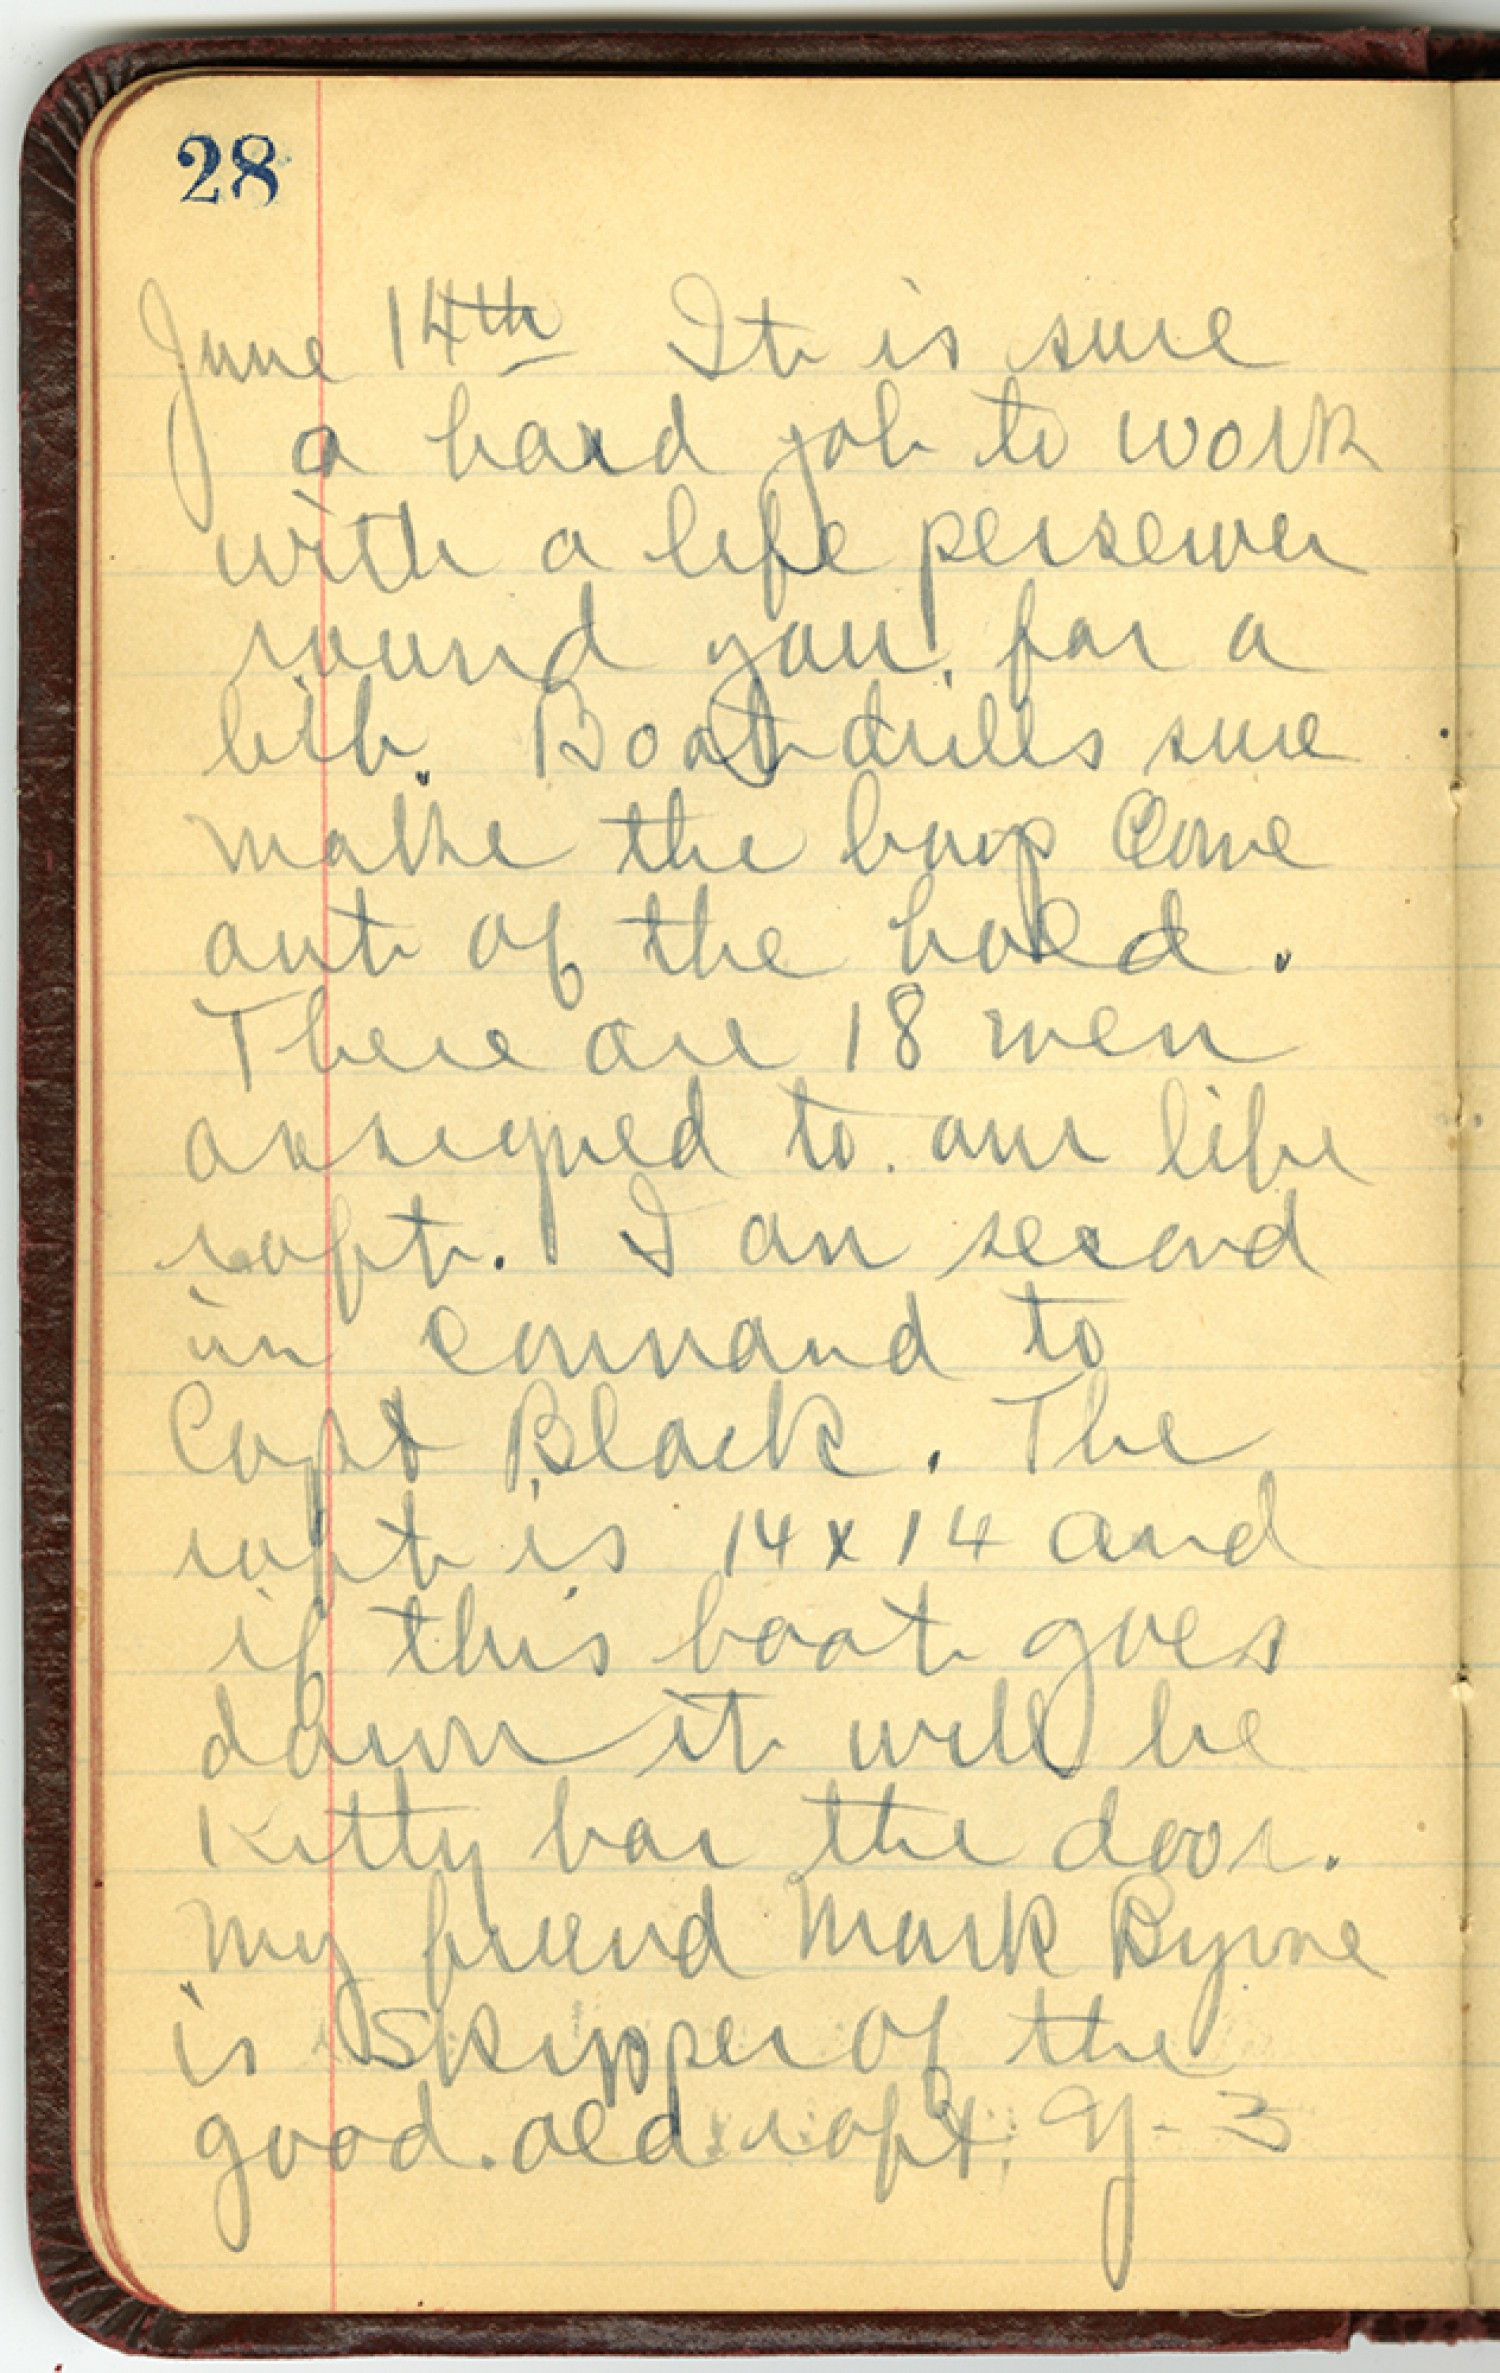 28
June 14th It is sure
a hard job to work
with a life perserver
round you, for a
bib. Boat drills sure
make the boys Come
out of the hold.
There are 18 men
assigned to our life
raft. I am second
in command to
Capt Black. The
raft is 14 x 14 and
if this boat goes
down it will be
Kitty bar the door.
My friend Mark Byrne
is Skipper of the
good old raft, Y-3